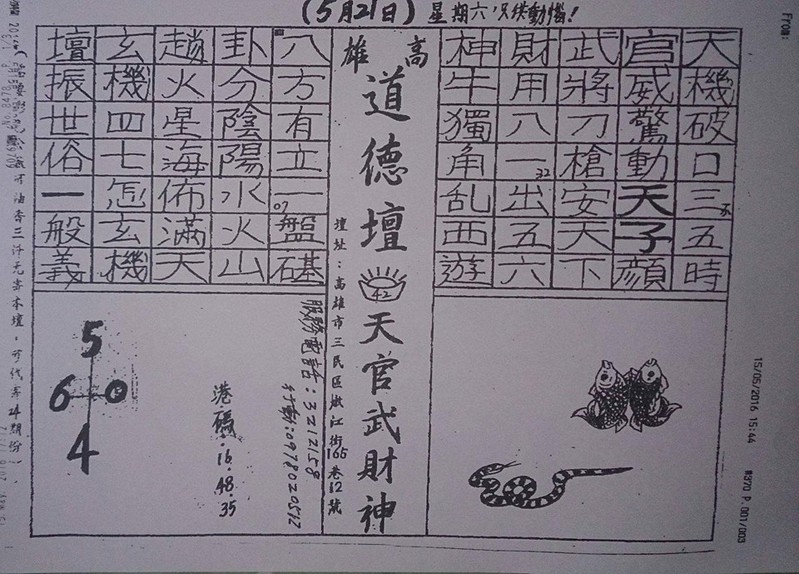 (5月21日) 星期六，只供動惱！
From:
15/05/2016 15:44
#370 P.001/003
天機破口三五時
官威驚動天子顏
武將刀槍安天下
財用八一出五六
32
神牛獨角乱西遊
高雄
道德壇
42
天官武財神
壇址：高雄市三民區嫩江街165巷12號
八方有立一盤碁
07
卦分陰陽水火山
趙火星海佈滿天
玄機四七怎玄機
壇振世俗一般義
服務電話：3212158
行動:0978020512
16.48.35
5
6 0
4